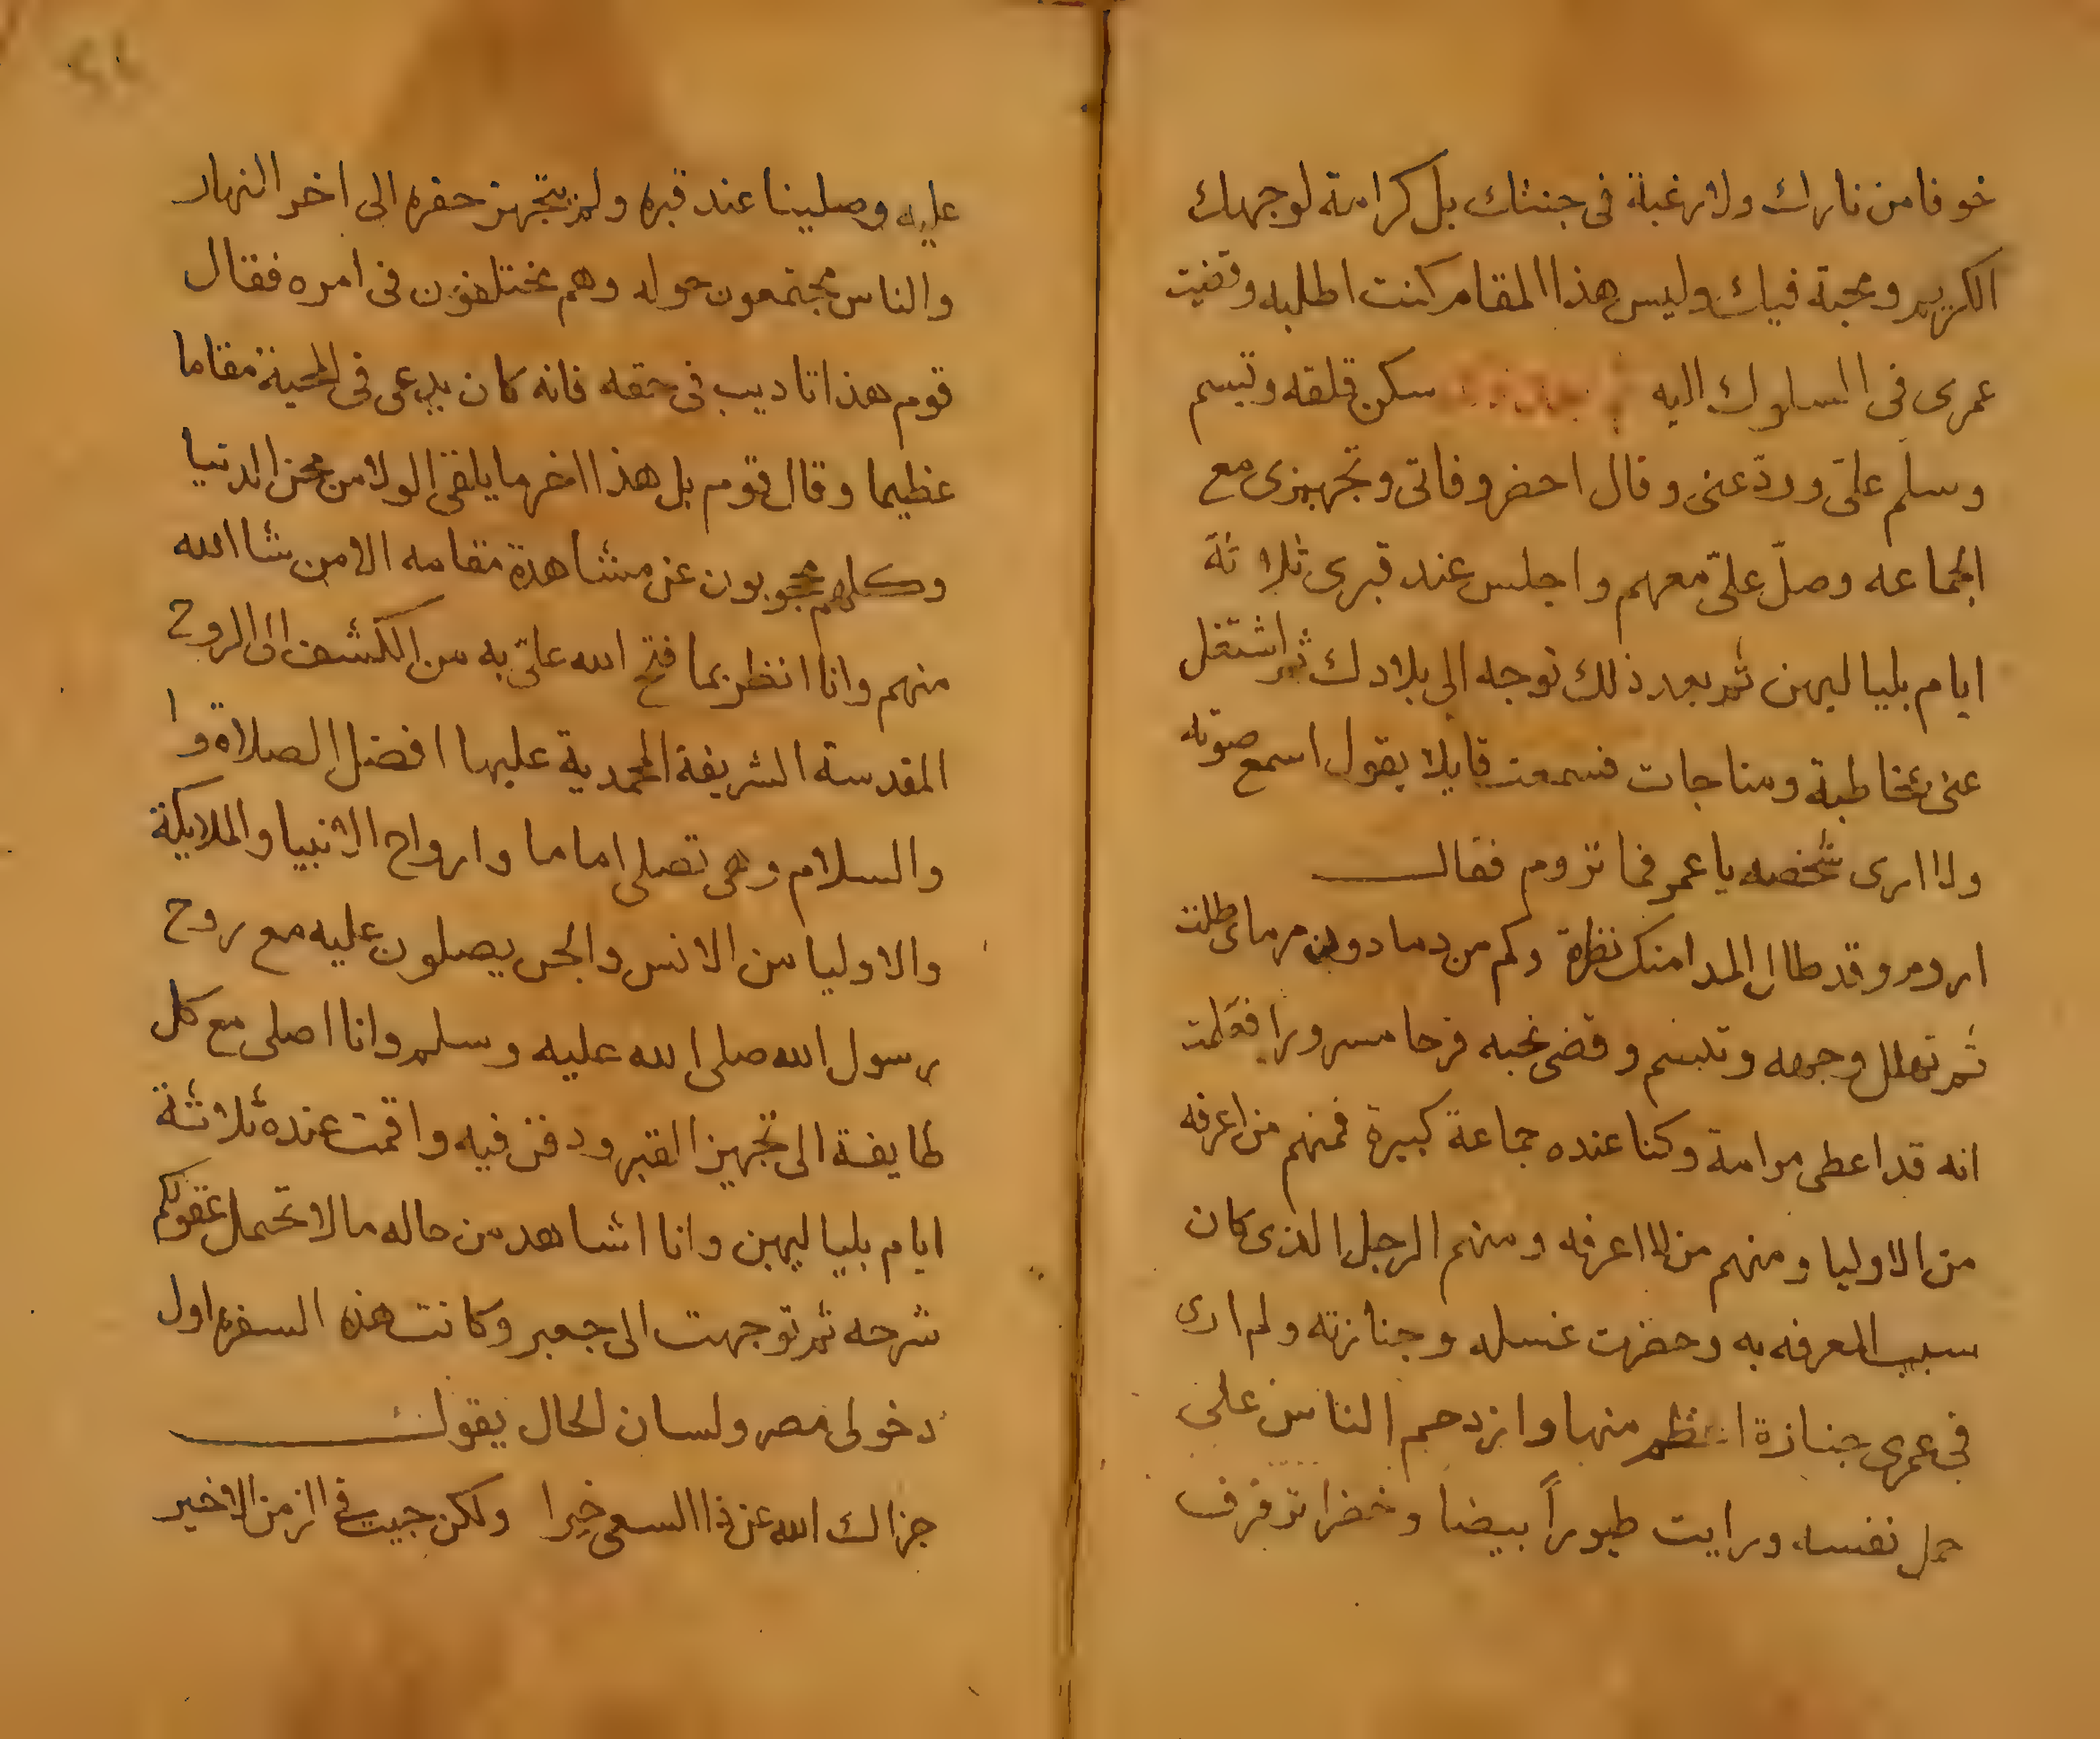 خوفا من نارك ولا رغبة فى جنتك بل كرامة لوجهك
الكريم ومحبة فيك وليس هذا المقام كنت اطلبه وقضيت
عمرى فى السلوك اليه سكن قلقه وتبسم
وسلم علىّ وودّعنى وقال احضر وفاتى وتجهيزى مع
الجماعه وصلّ علىّ معهم واجلس عند قبرى ثلاثة
ايام بلياليهن ثم بعد ذلك توجه الى بلادك ثم اشتغل
عنى بمخاطبة ومناجات فسمعت قايلا يقول اسمع صوته
ولا ارى شخصه يا عمر فما تروم فقال
اروم وقد طال المدا منك نظرة وكم من دما دون مرماى طلت
ثم تهلل وجهه وتبسم وقضى نحبه فرحا مسرورا فعلمت
انه قد اعطى مرامة وكنا عنده جماعة كبيرة فمنهم من اعرفه
من الاوليا ومنهم من لا اعرفه ومنهم الرجل الذى كان
سبب المعرفه به وحضرت غسله وجنازته ولم ارى
فى عمرى جنازة اعظم منها وازدحم الناس على
حمل نفسه ورايت طيوراً بيضا وخضرا ترفرف
عليه وصلينا عند قبره ولم يتجهز حفره الى اخر النهار
والناس مجتمعون حوله وهم مختلفون فى امره فقال
قوم هذا تاديب فى حقه فانه كان يدعى فى المحبة مقاما
عظيما وقال قوم بل هذا اخر ما يلقى الولا من محن الدنيا
وكلهم محجوبون عن مشاهدة مقامه الا من شا الله
منهم وانا انظر بما فتح الله علىّ به من الكشف الى الروح
المقدسة الشريفة المحمدية عليها افضل الصلاة وا
والسلام وهى تصلى اماما وارواح الانبيا والملايكة
والاوليا من الانس والجن يصلون عليه مع روح
رسول الله صلى الله عليه وسلم وانا اصلى مع كل
طايفة الى تجهيز القبر ودفن فيه واقمت عنده ثلاثة
ايام بلياليهن وانا اشاهد من حاله مالا تحمل عقولكم
شرحه ثم توجهت الى جعبر وكانت هذه السفره اول
دخولى مصر ولسان الحال يقول
جزاك الله عن ذا السعى خيرا ولكن جيت فى الزمن الاخير